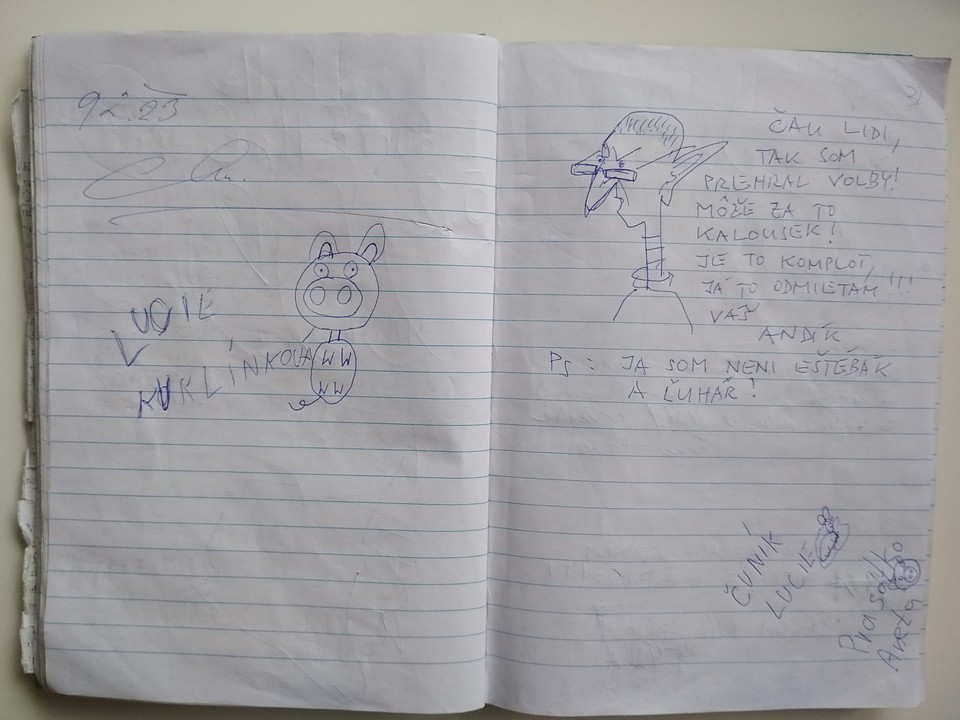 LUCIE
KURLÍNKOVÁ
ČAU LIDI,
TAK SOM
PREHRAL VOLBY!
MÔŽE ZA TO
KALOUSEK!
JE TO KOMPLOT,
JÁ TO ODMIETAM!!!
VÁŠ
ANDÍK
PS: JA SOM NENI EŠTĚBÁK
A LUHÁŘ!
ČUNÍK
LUCIE
Prasátko
Aneta